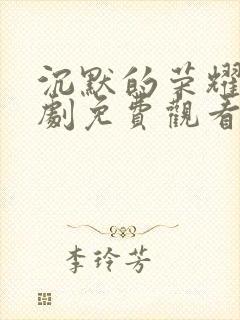 沉默的荣耀
劇免費觀看
李玲芳